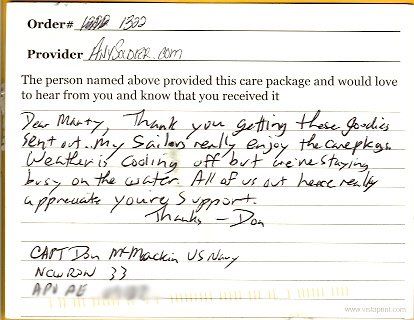 Order# 1322
Provider AnySoldier.com
The person named above provided this care package and would love
to hear from you and know that you received it
Dear Marty, Thank you getting these goodies
sent out. My Sailors really enjoy the care pkgs
Weather is cooling off but we're staying
busy on the water. All of us out here really
appreciate youre support.
Thanks - Don
CAPT Don McMackin US Navy
NCWRON 33
APO AE
www.vistaprint.com